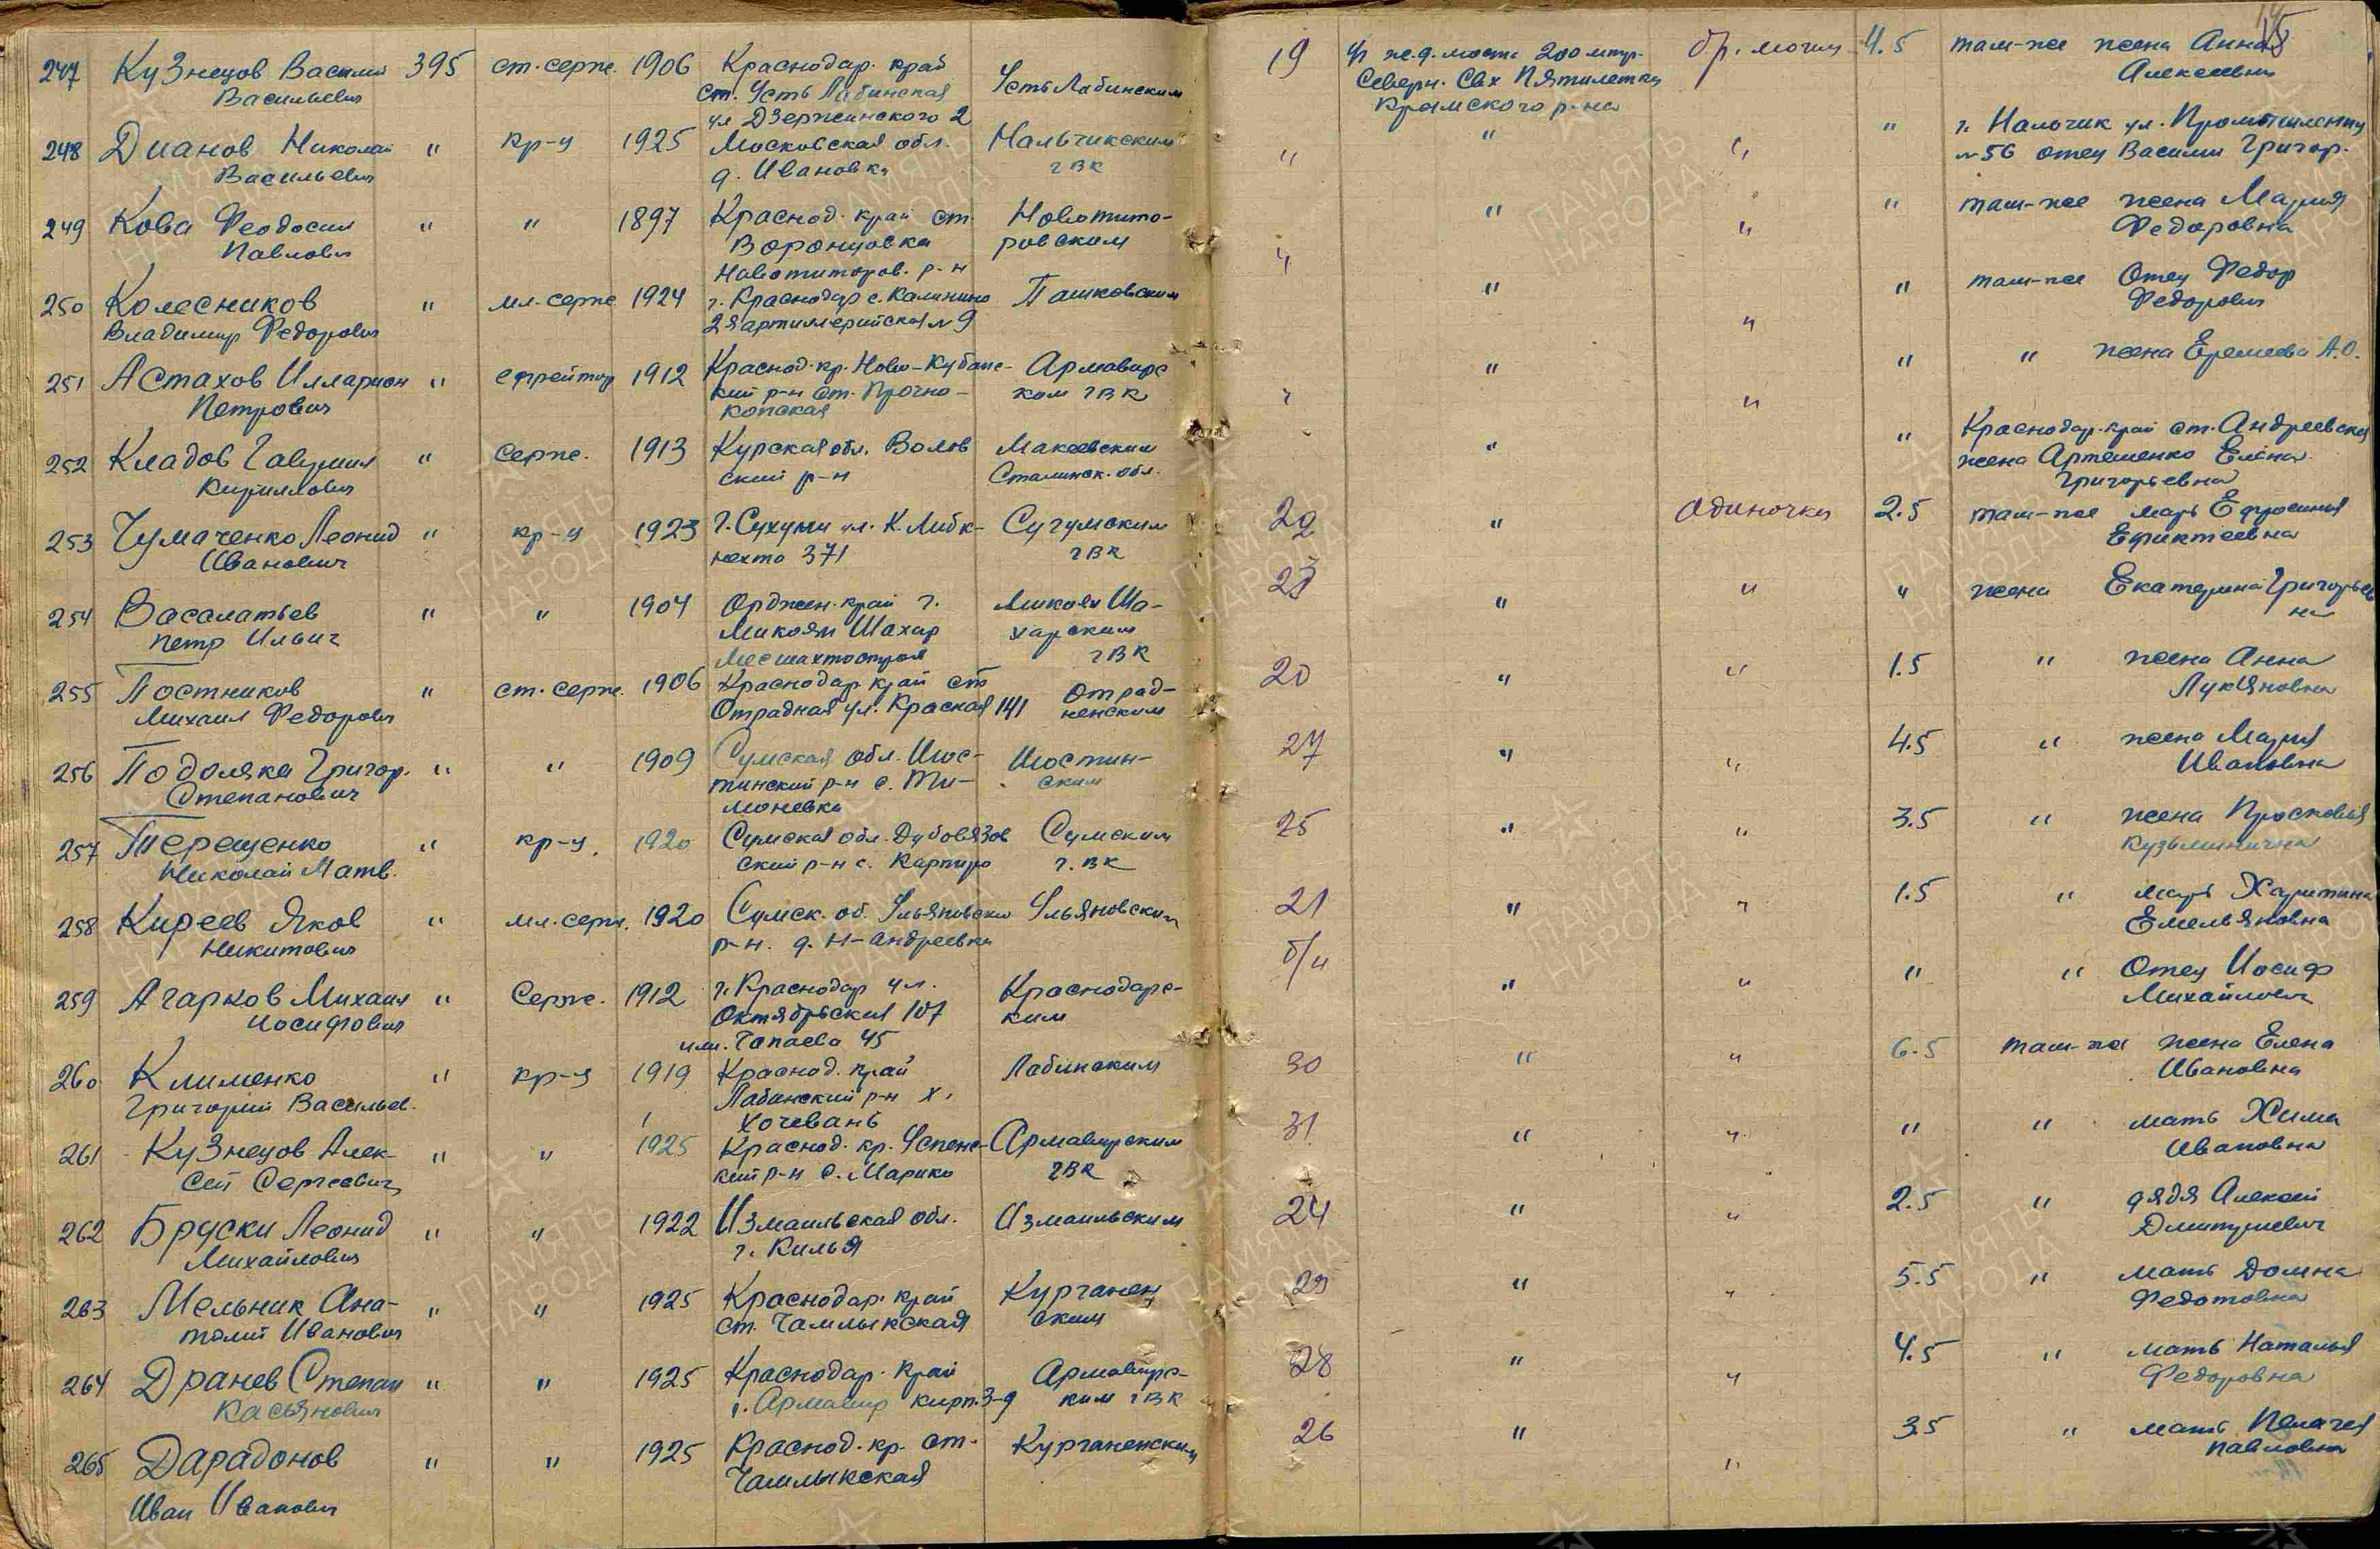 247 Кузнецов Василий 395 ст. серж. 1906 Краснодар. край Усть Лабинским 19 у ж.д. моста 200 мтр. бр. могил 4.5 там-же жена Анна 15
Васильевич ст. Усть Лабинская Северн. Свх Пятилетка Алексеевна
ул Дзержинского 2 Крымского р-на
248 Дианов Николай " кр-ц 1925 Московская обл. Нальчикским " " " " г. Нальчик ул. Промышленну
Васильевич д. Ивановка ГВК №56 отец Василий Григор.
249 Кова Феодосий " " 1897 Краснод. край ст. Новотито- " " " " там-же жена Мария
Павлович Воронцовка ровским Федоровна
Новотиторов. р-н
250 Колесников " мл. серж 1924 г. Краснодар с. Калинино Пашковским " " " там-же Отец Федор
Владимир Федорович 2я артиллерийская №9 Федорович
251 Астахов Илларион " ефрейтор 1912 Краснод. кр. Ново-Кубанс- Армавирс " " " " " жена Еремеева А.О.
Петрович кий р-н ст. Прочно- ким ГВК
копская
252 Кладов Гавриил " серж. 1913 Курская обл. Волов Макеевским " " Краснодар. край ст. Андреевская
Кириллович ский р-н Сталинск. обл. жена Артеменко Елена
Григорьевна
253 Чумаченко Леонид " кр-ц 1923 г. Сухуми ул. К. Либк- Сухумским " одиночка 2.5 там-же мать Ефросинья
Иванович нехта 371 ГВК
254 Васалатьев " " 1904 Орджон. край г. Микоян Ша- " " " жена Екатерина Григорьев
Петр Ильич Микоян Шахар харским на
Месшахтострой ГВК
255 Постников " ст. серж. 1906 Краснодар край ст Отрад- 20 " " 1.5 " жена Анна
Михаил Федорович Отрадная ул. Красная 141 ненским Лукяновна
256 Подоляка Григор. " " 1909 Сумская обл. Шос- Шостин- 27 " " 4.5 " жена Мария
Степанович тинский р-н с. Ти- ским Ивановна
моневка
257 Терещенко " кр-ц. 1920 Сумская обл. Дубовязов Сумским 25 " " 3.5 " жена Просковья
Николай Матв. ский р-н с. г. ВК Кузьминична
258 Киреев Яков " мл. серж. 1920 Сумск. об. Ульяновский Ульяновским 21 " " 1.5 " мать Харитина
Никитович р-н. д. Н-Андреевка Емельяновна
259 Агарков Михаил " Серж. 1912 г. Краснодар ул. Краснодарс- б/н " " " " Отец Иосиф
Иосифович Октябрьская 107 ким Михайлович
или. Чапаева 45
260 Клименко " кр-ц 1919 Краснод. край Лабинским 30 " " 6.5 там-же жена Елена
Григорий Васильев. Лабинский р-н х. Ивановна
Хочевань
261 Кузнецов Алек- " " 1925 Краснод. кр. Успенс- Армавирским 31 " " " " мать Хима
сей Сергеевич кий р-н с. Марико ГВК Ивановна
262 Бруски Леонид " " 1922 Измаильская обл. Измаильским 24 " " 2.5 " дядя Алексей
Михайлович г. Килья Дмитриевич
263 Мельник Ана- " " 1925 Краснодар. край Курганен 29 " " 5.5 " мать Домна
толий Иванович ст. Чамлыкская ским Федотовна
264 Дранев Степан " " 1925 Краснодар. край Армавирс- 28 " " 4.5 " мать Наталья
Касьянович г. Армавир кирп. з-д ким ГВК Федоровна
265 Дарадонов " " 1925 Краснод. кр. ст. Курганенским 26 " " 3.5 " мать Пелагея
Иван Иванович Чамлыкская Павловна